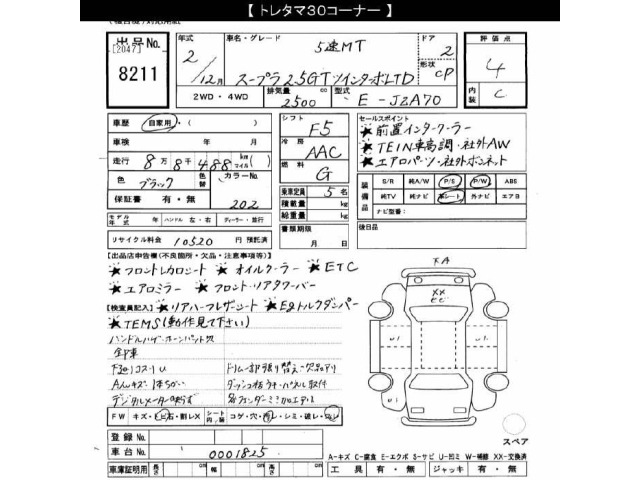 【 トレタマ30コーナー 】
出品No.
[2047]
8211
年式
2/12月
車名・グレード
5速MT
スープラ2.5GTツインターボLTD
ドア
2
形状
CP
2WD・4WD
排気量
2500
cc
型式
E-JZA70
評価点
4
内装
C
車歴
自家用・( )
車検
年 月
走行
8万8千488
km
マイル
( )
色
ブラック
色替
カラーNo.
202
保証書
有・無
モデル年式
年
ハンドル
左・右
ディーラー・並行
リサイクル料金
10520
円
預託済
シフト
F5
冷房
AAC
燃料
G
乗車定員
5名
積載量
kg
総重量
kg
書類期限
月 日
セールスポイント
★前置インタークーラー
★TEIN車高調・社外AW
★エアロパーツ・社外ボンネット
装備品
S/R
純A/W
P/S
P/W
ABS
純TV
純ナビ
革シート
外ナビ
エアB
ナビ型番:
後日品
【出品店申告欄(不良箇所・欠品・注意事項等)】
★フロントレカロシート ★オイルクーラー ★ETC
★エアロミラー ★フロントリアタワーバー
【検査員記入】★リアハーフレザーシート★Egトルクダンパー
★TEMS(動作見て下さい)
FW
キズ・トビ石・割レX
シート内ハ
コゲ・穴・切レ・シミ・破レ・スレ
登録No.
車台No.
0001825
車庫証明用
長さ
cm
幅
cm
高さ
cm
XX
U1
U1
U1
U1
スペア
A-キズ C-腐食 E-エクボ S-サビ U-凹ミ W-補修 XX-交換済
工具
有・無
ジャッキ
有・無